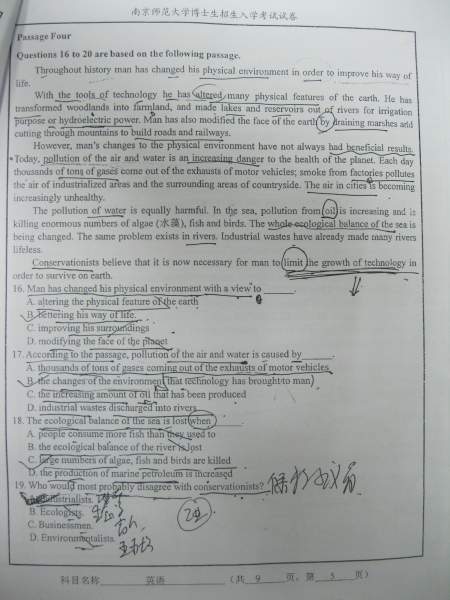 南京师范大学博士生招生入学考试试卷
Passage Four
Questions 16 to 20 are based on the following passage.
Throughout history man has changed his physical environment in order to improve his way of
life.
With the tools of technology he has altered many physical features of the earth. He has
transformed woodlands into farmland, and made lakes and reservoirs out of rivers for irrigation
purpose or hydroelectric power. Man has also modified the face of the earth by draining marshes and
cutting through mountains to build roads and railways.
However, man's changes to the physical environment have not always had beneficial results.
Today, pollution of the air and water is an increasing danger to the health of the planet. Each day
thousands of tons of gases come out of the exhausts of motor vehicles; smoke from factories pollutes
the air of industrialized areas and the surrounding areas of countryside. The air in cities is becoming
increasingly unhealthy.
The pollution of water is equally harmful. In the sea, pollution from oil is increasing and is
killing enormous numbers of algae (水藻), fish and birds. The whole ecological balance of the sea is
being changed. The same problem exists in rivers. Industrial wastes have already made many rivers
lifeless.
Conservationists believe that it is now necessary for man to limit the growth of technology in
order to survive on earth.
16. Man has changed his physical environment with a view to
A. altering the physical feature of the earth
B. bettering his way of life.
C. improving his surroundings
D. modifying the face of the planet
17. According to the passage, pollution of the air and water is caused by
A. thousands of tons of gases coming out of the exhausts of motor vehicles
B. the changes of the environment that technology has brought to man
C. the increasing amount of oil that has been produced
D. industrial wastes discharged into rivers
18. The ecological balance of the sea is lost when
A. people consume more fish than they used to
B. the ecological balance of the river is lost
C. large numbers of algae, fish and birds are killed
D. the production of marine petroleum is increased
19. Who would most probably disagree with conservationists?
A. Industrialists.
B. Ecologists.
C. Businessmen.
D. Environmentalists.
科目名称 英语 (共 9 页, 第 5 页)